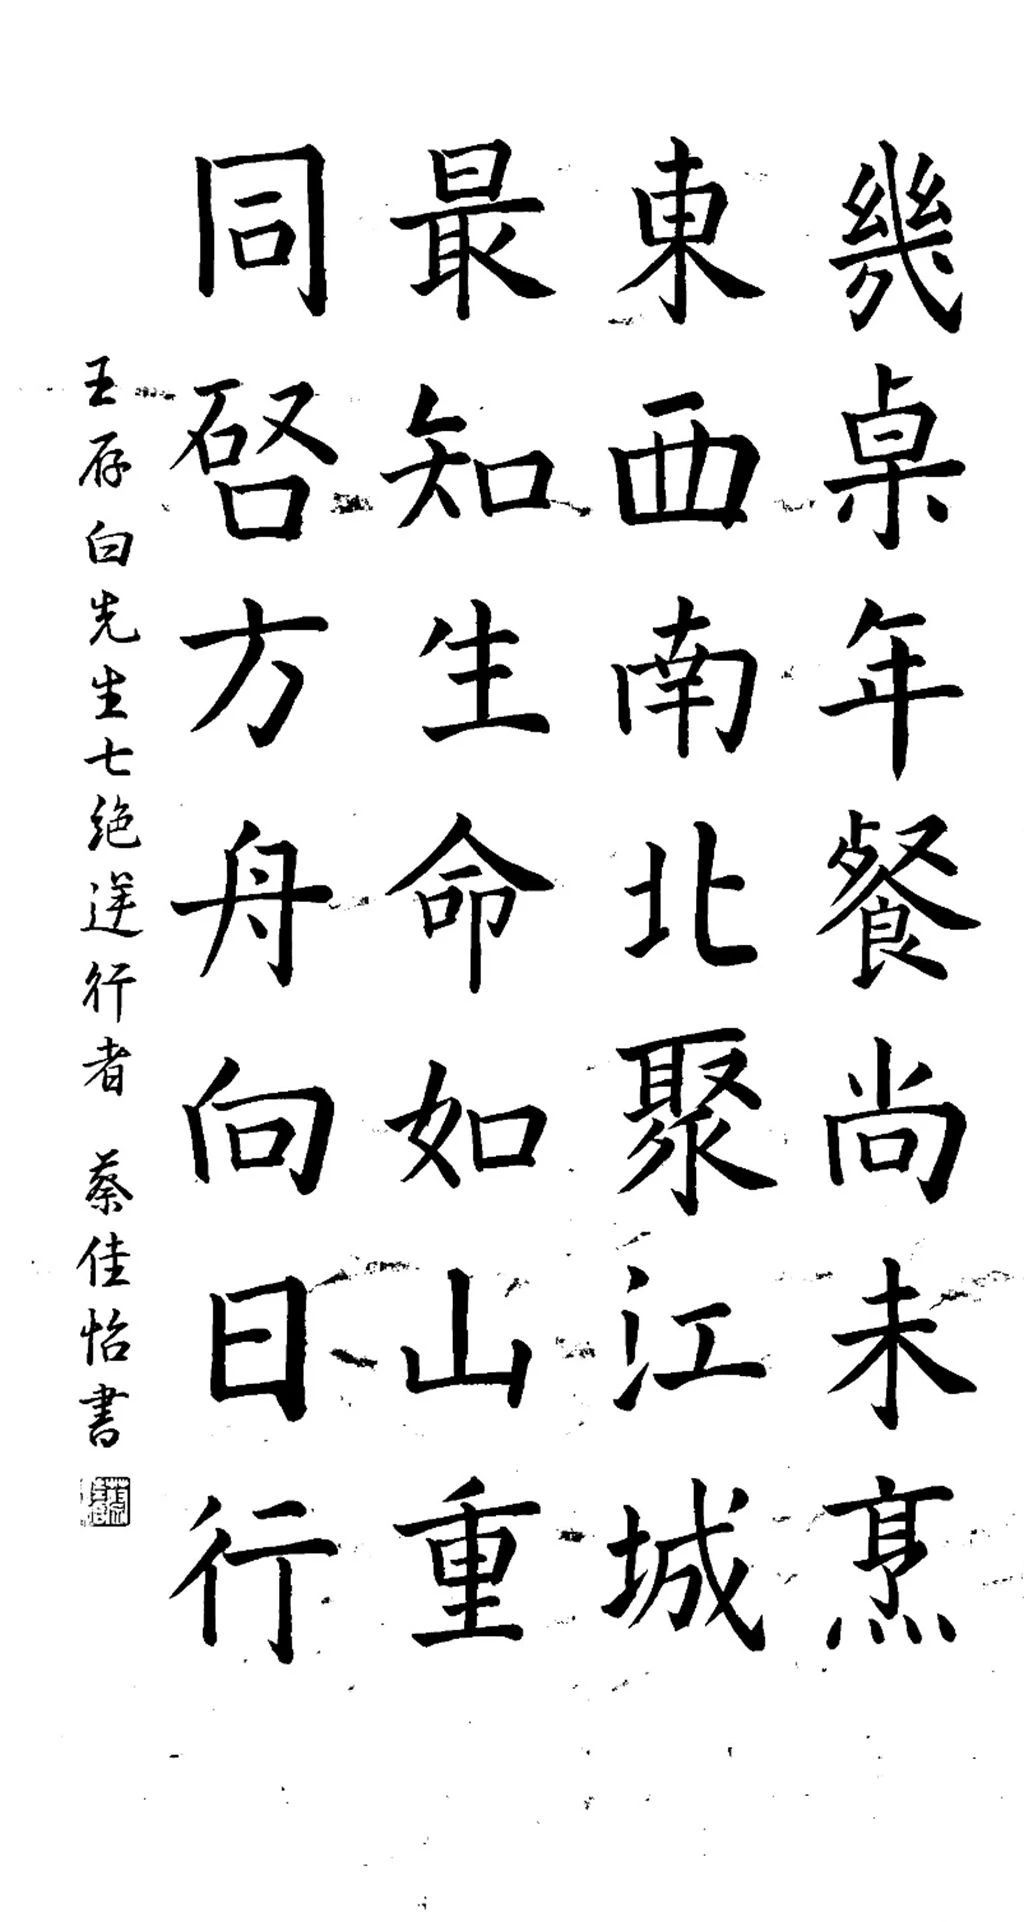 幾桌年餐尚未烹
東西南北聚江城
最知生命如山重
同啓方舟向日行
王存白先生七绝逆行者 蔡佳怡書